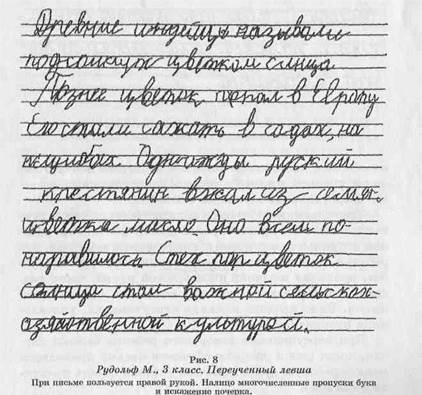 Древние индейцы называли
подсолнух цветком слнца
Познее цветок попал в Европу
Его стали сажать в садах, на
клумбах. Однажды руский
крестянин вжал из семян
цветка масло. Оно всем по-
нравилось. С тех пор цветок
солнца стал важной сельскох-
озяйственной культурой.
Рис. 8
Рудольф М., 3 класс. Переученный левша
При письме пользуется правой рукой. Налицо многочисленные пропуски букв
и искажение почерка.